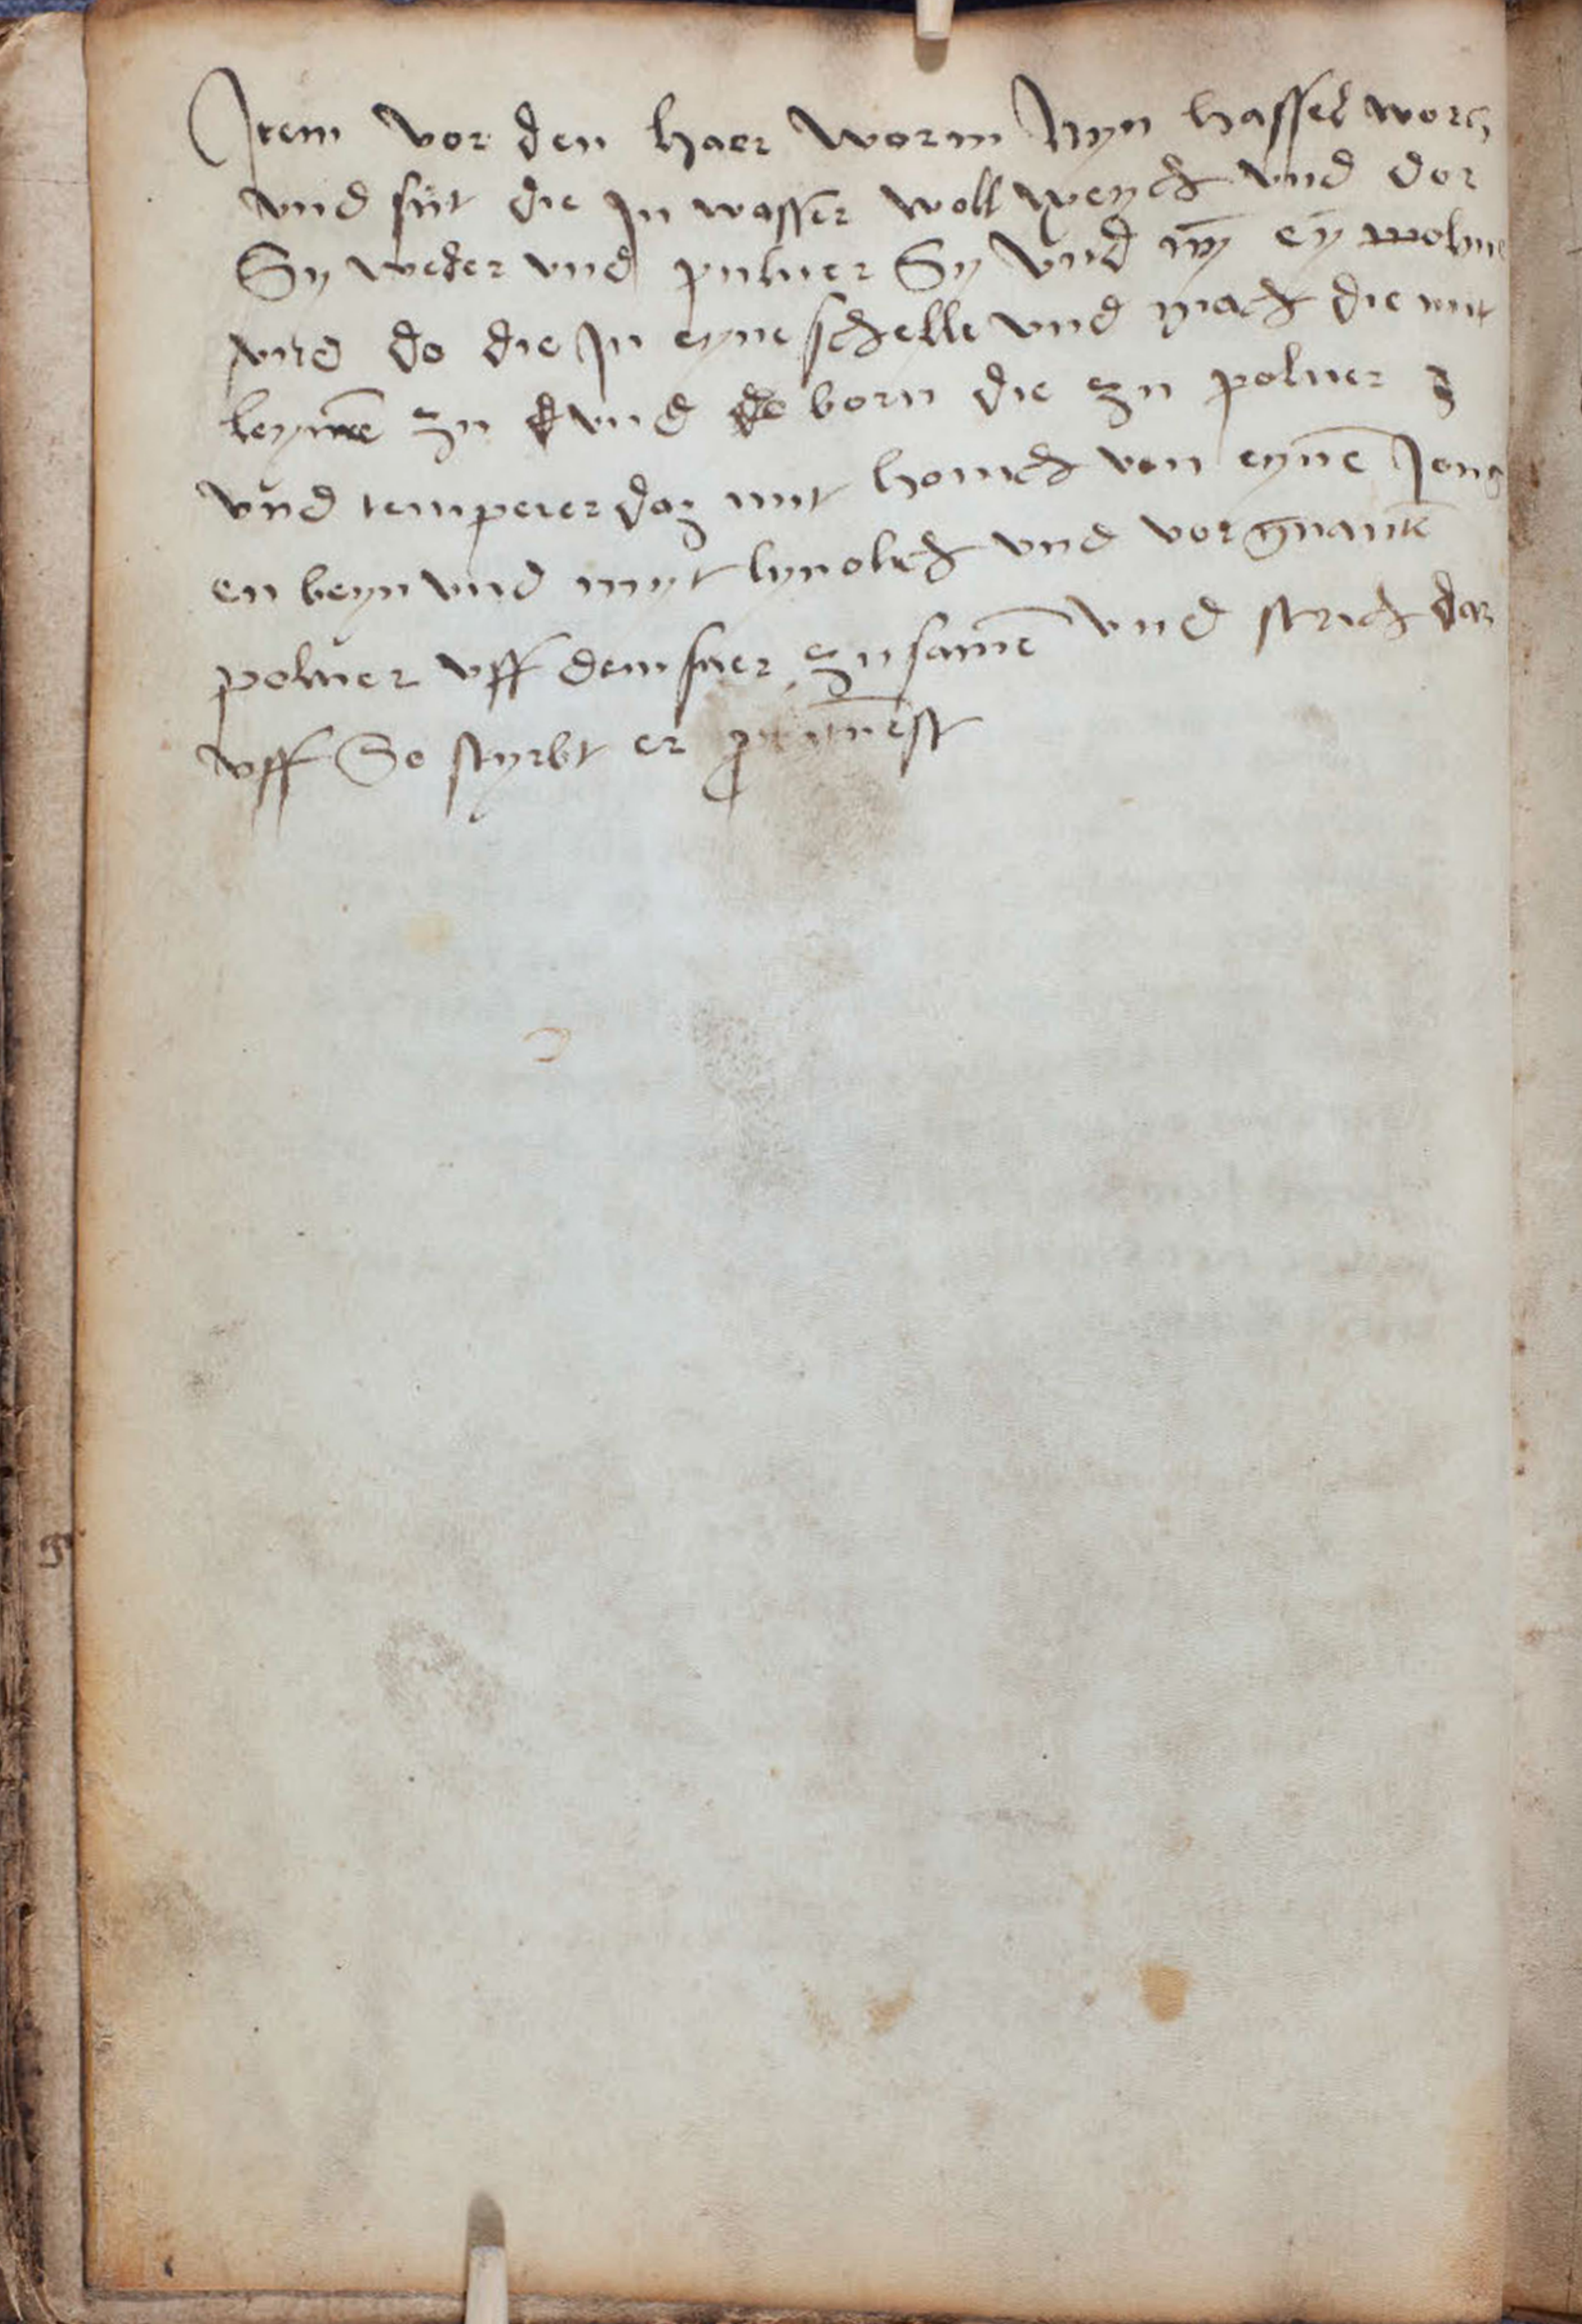 Item vor den haer worm Nÿn hassel worcz
vnd sùt die Jn wasser woll weych vnd dor
Sy weder vnd puluer Sy Vnd nȳ eȳ molme
vnd do die Jn eyne schelle vnd mach die mit
leymē zu vnd born die zu poluer
vnd temperer daz mit honich von eynē Jong
en beyn vnd myt lynolich vnd vorgnantē
poluer vff dem fuer zu samē vnd strich daz
vff So styrbt er